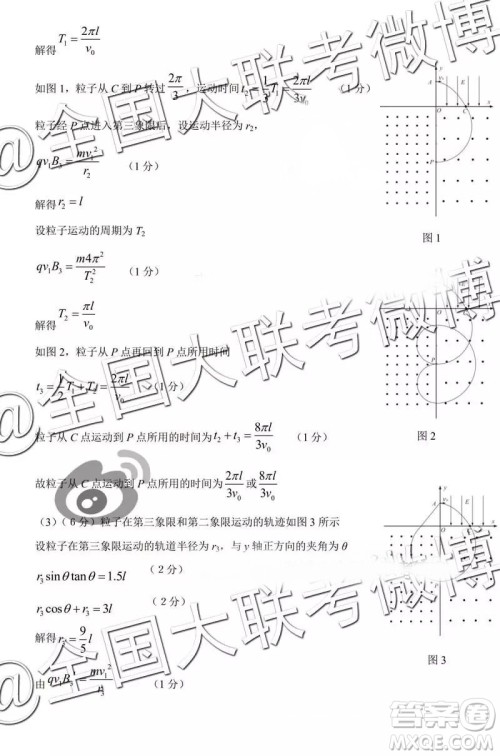 解得 T₁ = 2πl/v₀
如图 1，粒子从 C 到 P 转过 2π/3，运动时间 t₂ = 1/3 T₁ = 2πl/3v₀ （1 分）
粒子经 P 点进入第三象限后，设运动半径为 r₂，
qv₁B₃ = mv₁²/r₂ （1 分）
解得 r₂ = l
图 1
设粒子运动的周期为 T₂
qv₁B₃ = m4π²/T₂² （1 分）
解得 T₂ = πl/v₀
如图 2，粒子从 P 点再回到 P 点所用时间
t₃ = 1/2 T₁ + T₂ = 2πl/v₀ （1 分）
粒子从 C 点运动到 P 点所用的时间为 t₂ + t₃ = 8πl/3v₀ （1 分）
图 2
故粒子从 C 点运动到 P 点所用的时间为 2πl/3v₀ 或 8πl/3v₀
（3）（6 分）粒子在第三象限和第二象限运动的轨迹如图 3 所示
设粒子在第三象限运动的轨道半径为 r₃，与 y 轴正方向的夹角为 θ
r₃ sinθ tanθ = 1.5l （2 分）
r₃ cosθ + r₃ = 3l （2 分）
解得 r₃ = 9/5 l
图 3
由 qv₁B₃ = mv₁²/r₃ （1 分）
@全国大联考微博
@全国大联考微博
@全国大联考微博
答案圈
MXQE.COM